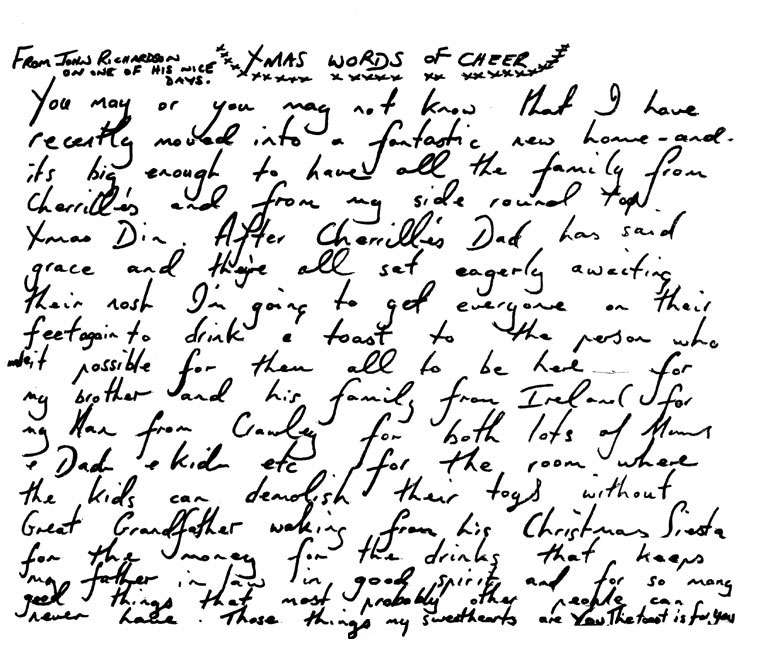 FROM JOHN RICHARDSON
ON ONE OF HIS NICE
DAYS.
XMAS WORDS OF CHEER
You may or you may not know that I have
recently moved into a fantastic new home - and -
its big enough to have all the family from
Cherrille's and from my side round for
Xmas Din. After Cherrille's Dad has said
grace and they're all sat eagerly awaiting
their nosh I'm going to get everyone on their
feet again to drink a toast to the person who
made it possible for them all to be here for
my brother and his family from Ireland for
my Nan from Crawley for both lots of Mums
& Dads & kids etc for the room where
the kids can demolish their toys without
Great Grandfather waking from his Christmas Siesta
for the money for the drinks that keeps
my father in law in good spirit and for so many
good things that most probably other people can
never have. Those things my sweethearts are You The toast is for you